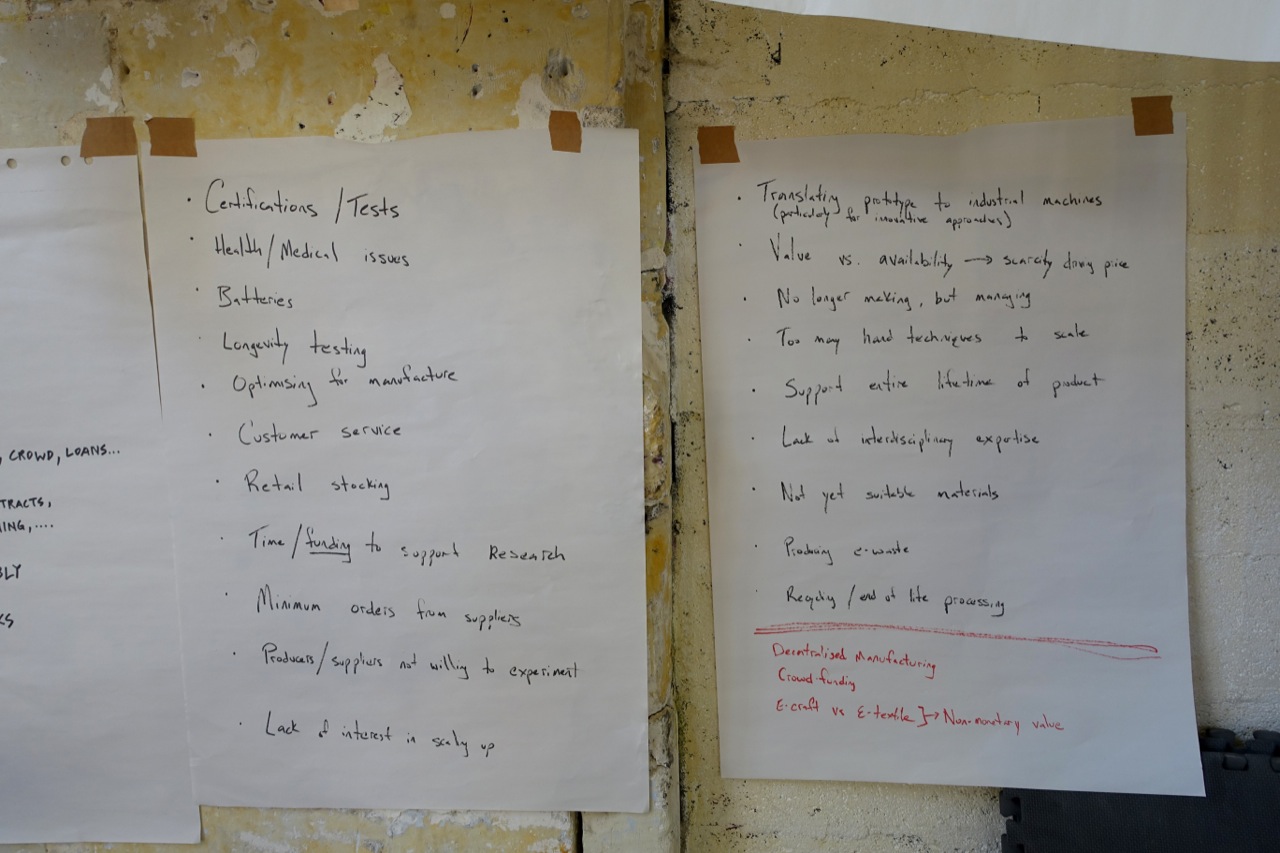 , CROWD, LOANS...
TRACTS,
ING,....
BLY
KS
· Certifications / Tests
· Health/Medical issues
· Batteries
· Longevity testing
· Optimising for manufacture
· Customer service
· Retail stocking
· Time/funding to support Research
· Minimum orders from suppliers
· Producers/suppliers not willing to experiment
· Lack of interest in scaling up
· Translating prototype to industrial machines
(particularly for innovative approaches)
· Value vs. availability → scarcity driving price
· No longer making, but managing
· Too may hard techniques to scale
· Support entire lifetime of product
· Lack of interdisciplinary expertise
· Not yet suitable materials
· Producing e-waste
· Recycling / end of life processing
Decentralised Manufacturing
Crowd-funding
E-craft vs E-textile ]→ Non-monetary value